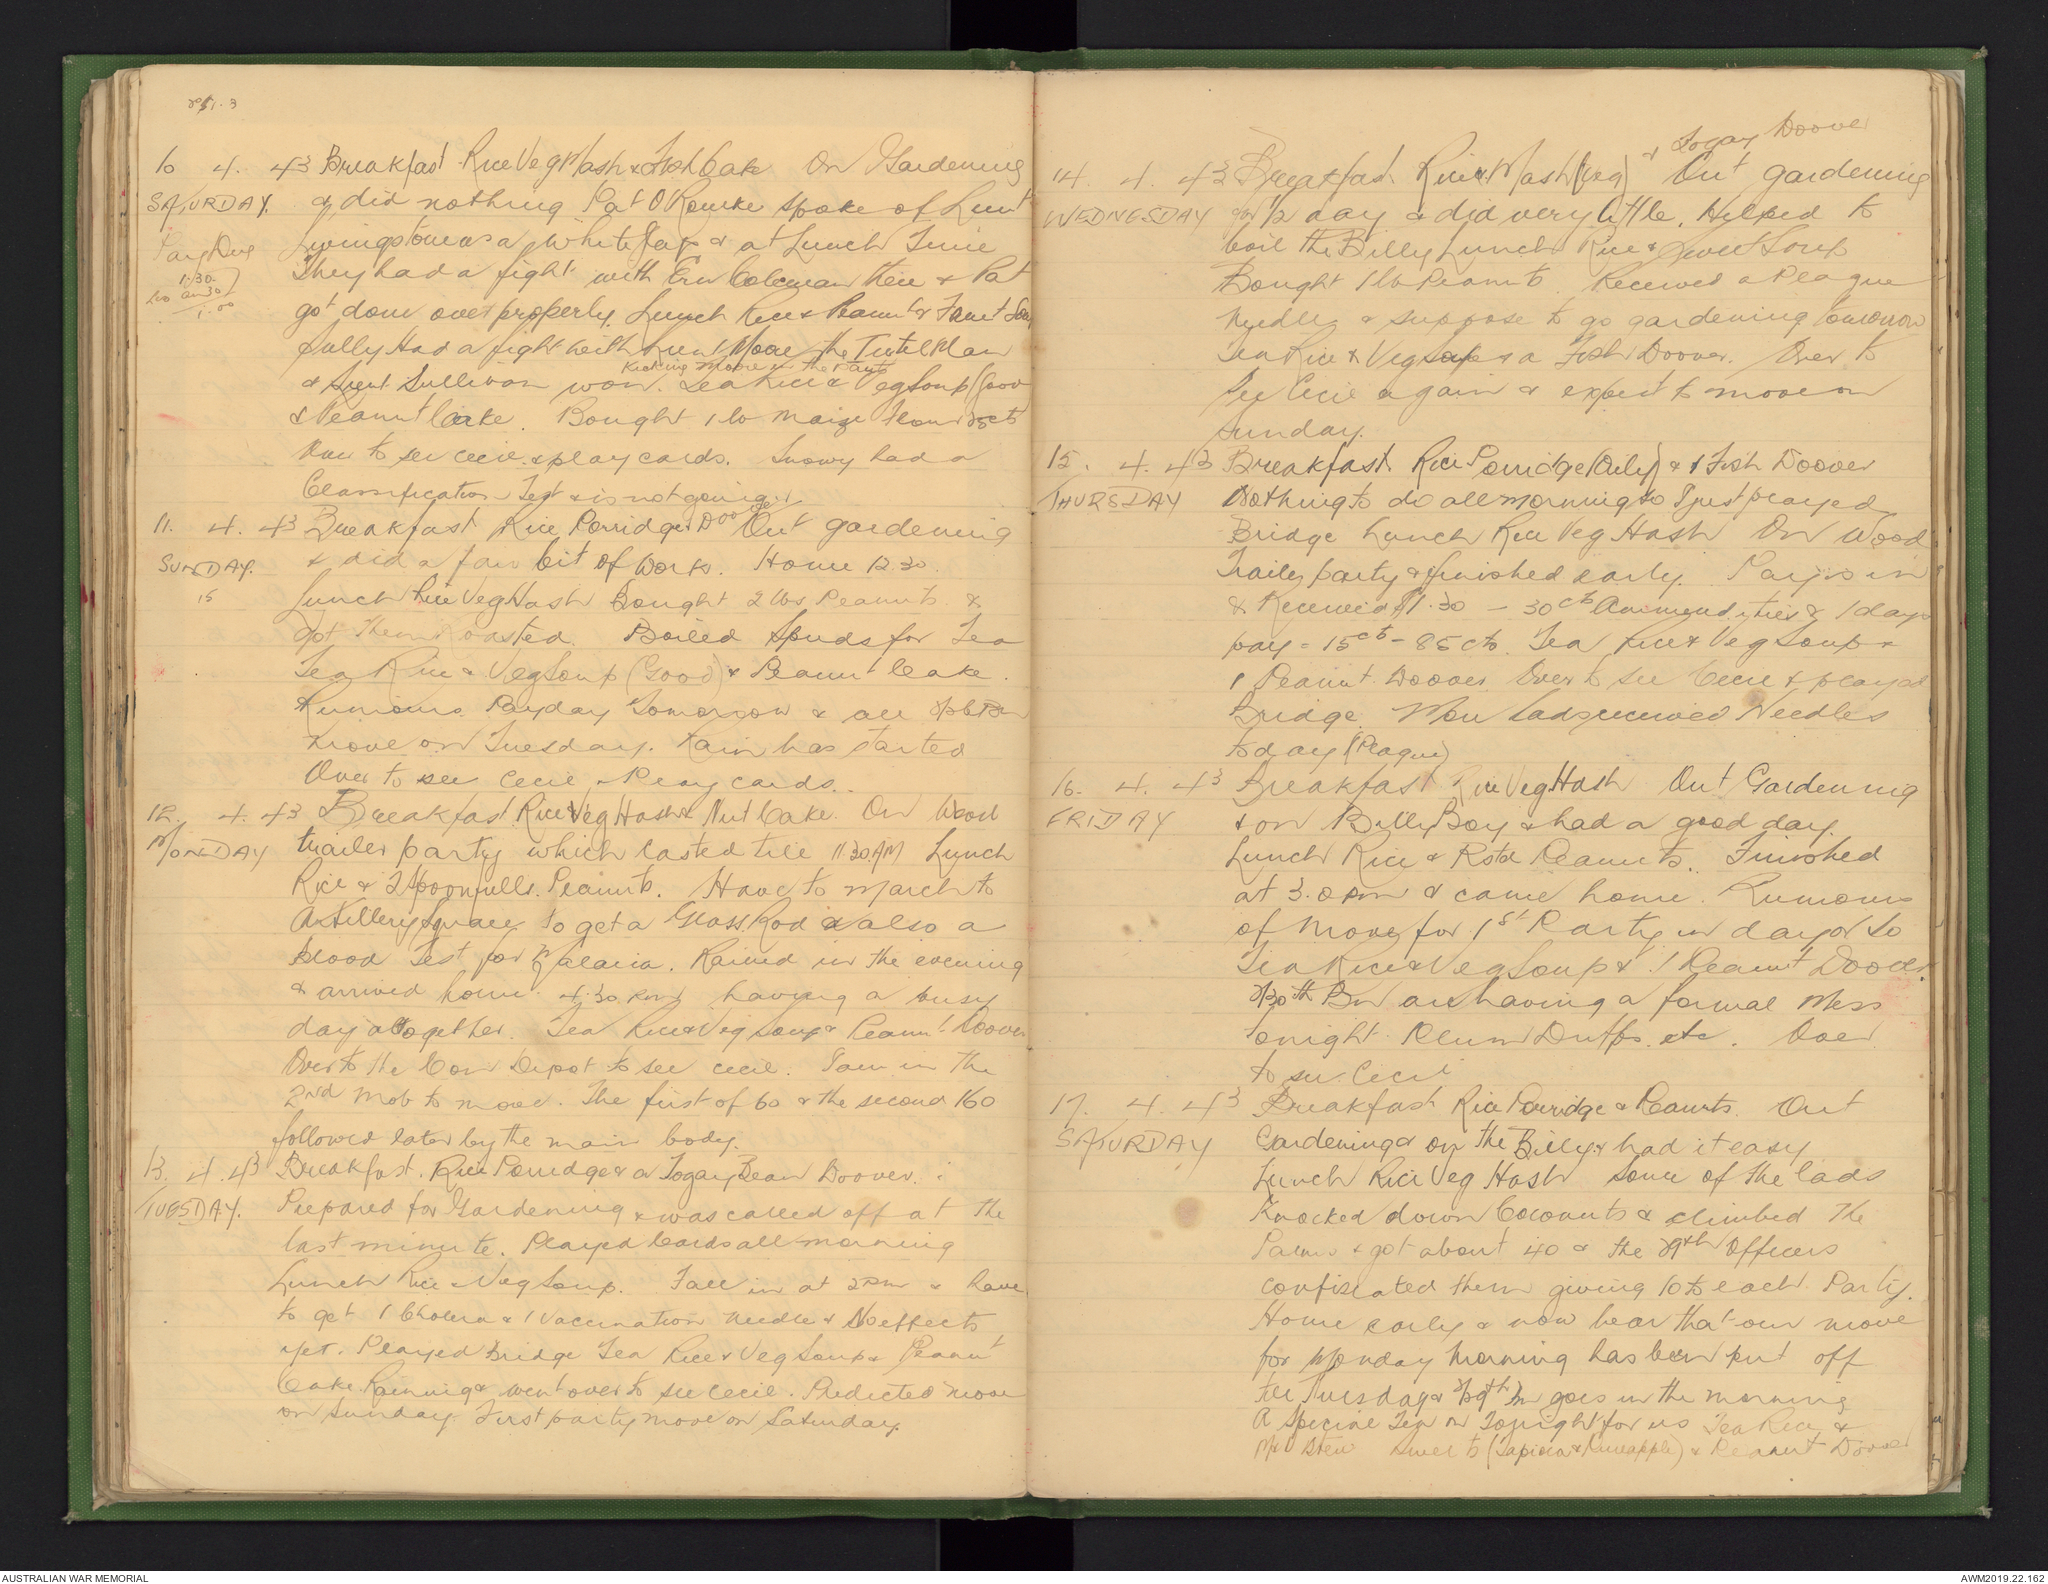 10 4. 43 Breakfast Rice Veg Hash & Fish Cake On Gardening
SATURDAY. & did nothing Pat O'Rourke spoke of Lieut
Pay Due Livingstone as a White Jap & at Lunch Time
1.30 They had a fight with Ern Coleman there & Pat
30
1.00 got done over properly. Lunch Rice & Peanut &
Sully Had a fight with Moore the Turtel Man
Kicking Moore in the Pants
& Sullivan won. Tea Rice & Veg Soup (Good
& Peanut Cake. Bought 1 lb Maize Flour 25cts
Over to see Cecil & play cards. Snowy had a
Classification Test & is not going.
11. 4. 43 Breakfast Rice Porridge & Doover Out gardening
SUNDAY. & did a fair bit of work. Home 12.30.
15 Lunch Rice Veg Hash Bought 2 lbs Peanuts &
got them roasted. Boiled Spuds for Tea
Tea Rice & Veg Soup (Good) & Peanut Cake.
Rumours Payday Tomorrow & all
move on Tuesday. Rain has started
Over to see Cecil & Play cards.
12. 4. 43 Breakfast Rice & Veg Hash & Nut Cake. On Wood
MONDAY trailer party which lasted till 11 30 AM Lunch
Rice & 2 Spoonfulls Peanuts. Have to march to
Artillery Square to get a Glass Rod & also a
Blood Test for Malaria. Rained in the evening
& arrived home 4.30 PM having a busy
day altogether. Tea Rice & Veg Soup & Peanut Doover
Over to the Con Depot to see Cecil. I am in the
2nd Mob to move. The first of 60 & the second 160
followed later by the main body.
13. 4. 43 Breakfast. Rice Porridge & a Togay Bean Doover.
TUESDAY. Prepared for Gardening & was called off at the
last minute. Played Cards all morning
Lunch Rice & Veg Soup. Fall in at 2 PM & have
to get 1 Cholera & 1 Vaccination Needle & No effects
yet. Played Bridge Tea Rice & Veg Soup & Peanut
Cake. Raining & went over to see Cecil. Predicted move
on Sunday. First party move on Saturday.
& Togay Doover
14. 4. 43 Breakfast Rice & Hash (Veg) Out gardening
WEDNESDAY for 1/2 day & did very little. Helped to
boil the Billy Lunch Rice & Sweet Soup
Bought 1 lb Peanuts. Received a Plague
Needle & suppose to go gardening tomorrow
Tea Rice & Veg Soup & a Fish Doover. Over to
see Cecil again & expect to move on
Sunday.
15. 4. 43 Breakfast Rice Porridge (Oily) & 1 Fish Doover
THURSDAY Nothing to do all morning so I just played
Bridge Lunch Rice Veg Hash On Wood
Trailer party & finished early. Pay is in
& Received $1.30 - 30cts Ammendities & 1 days
pay = 15cts - 85cts. Tea Rice & Veg Soup &
1 Peanut Doover. Over to see Cecil & played
Bridge. More Lads received Needles
today (Plague)
16. 4. 43 Breakfast Rice Veg Hash Out Gardening
FRIDAY & on Billy Boy & had a good day.
Lunch Rice & Rstd Peanuts. Finished
at 3.0 PM & came home. Rumours
of Move for 1st Party in day or so
Tea Rice & Veg Soup & 1 Peanut Doover.
2/30th Bn are having a formal Mess
tonight. Plum Duffs. etc. Over
to see Cecil
17. 4. 43 Breakfast Rice Porridge & Peanuts. Out
SATURDAY Gardening & on the Billy & had it easy
Lunch Rice Veg Hash Some of the lads
Knocked down Coconuts & climbed the
Palms & got about 40 & the 29th Officers
confiscated them giving 10 to each Party.
Home early & now hear that our move
for Monday Morning has been put off
till Tuesday & 2/29th Bn goes in the morning
A Special Tea on Tonight for us Tea Rice &
Stew Sweets (Tapioca & Pineapple) & Peanut Doover
AUSTRALIAN WAR MEMORIAL
AWM2019.22.162